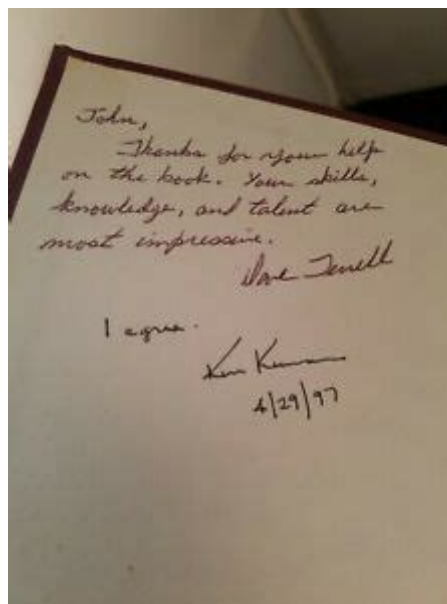 John,
Thanks for your help
on the book. Your skills,
knowledge, and talent are
most impressive.
Dave Terrell
I agree.
Ken
4/29/97